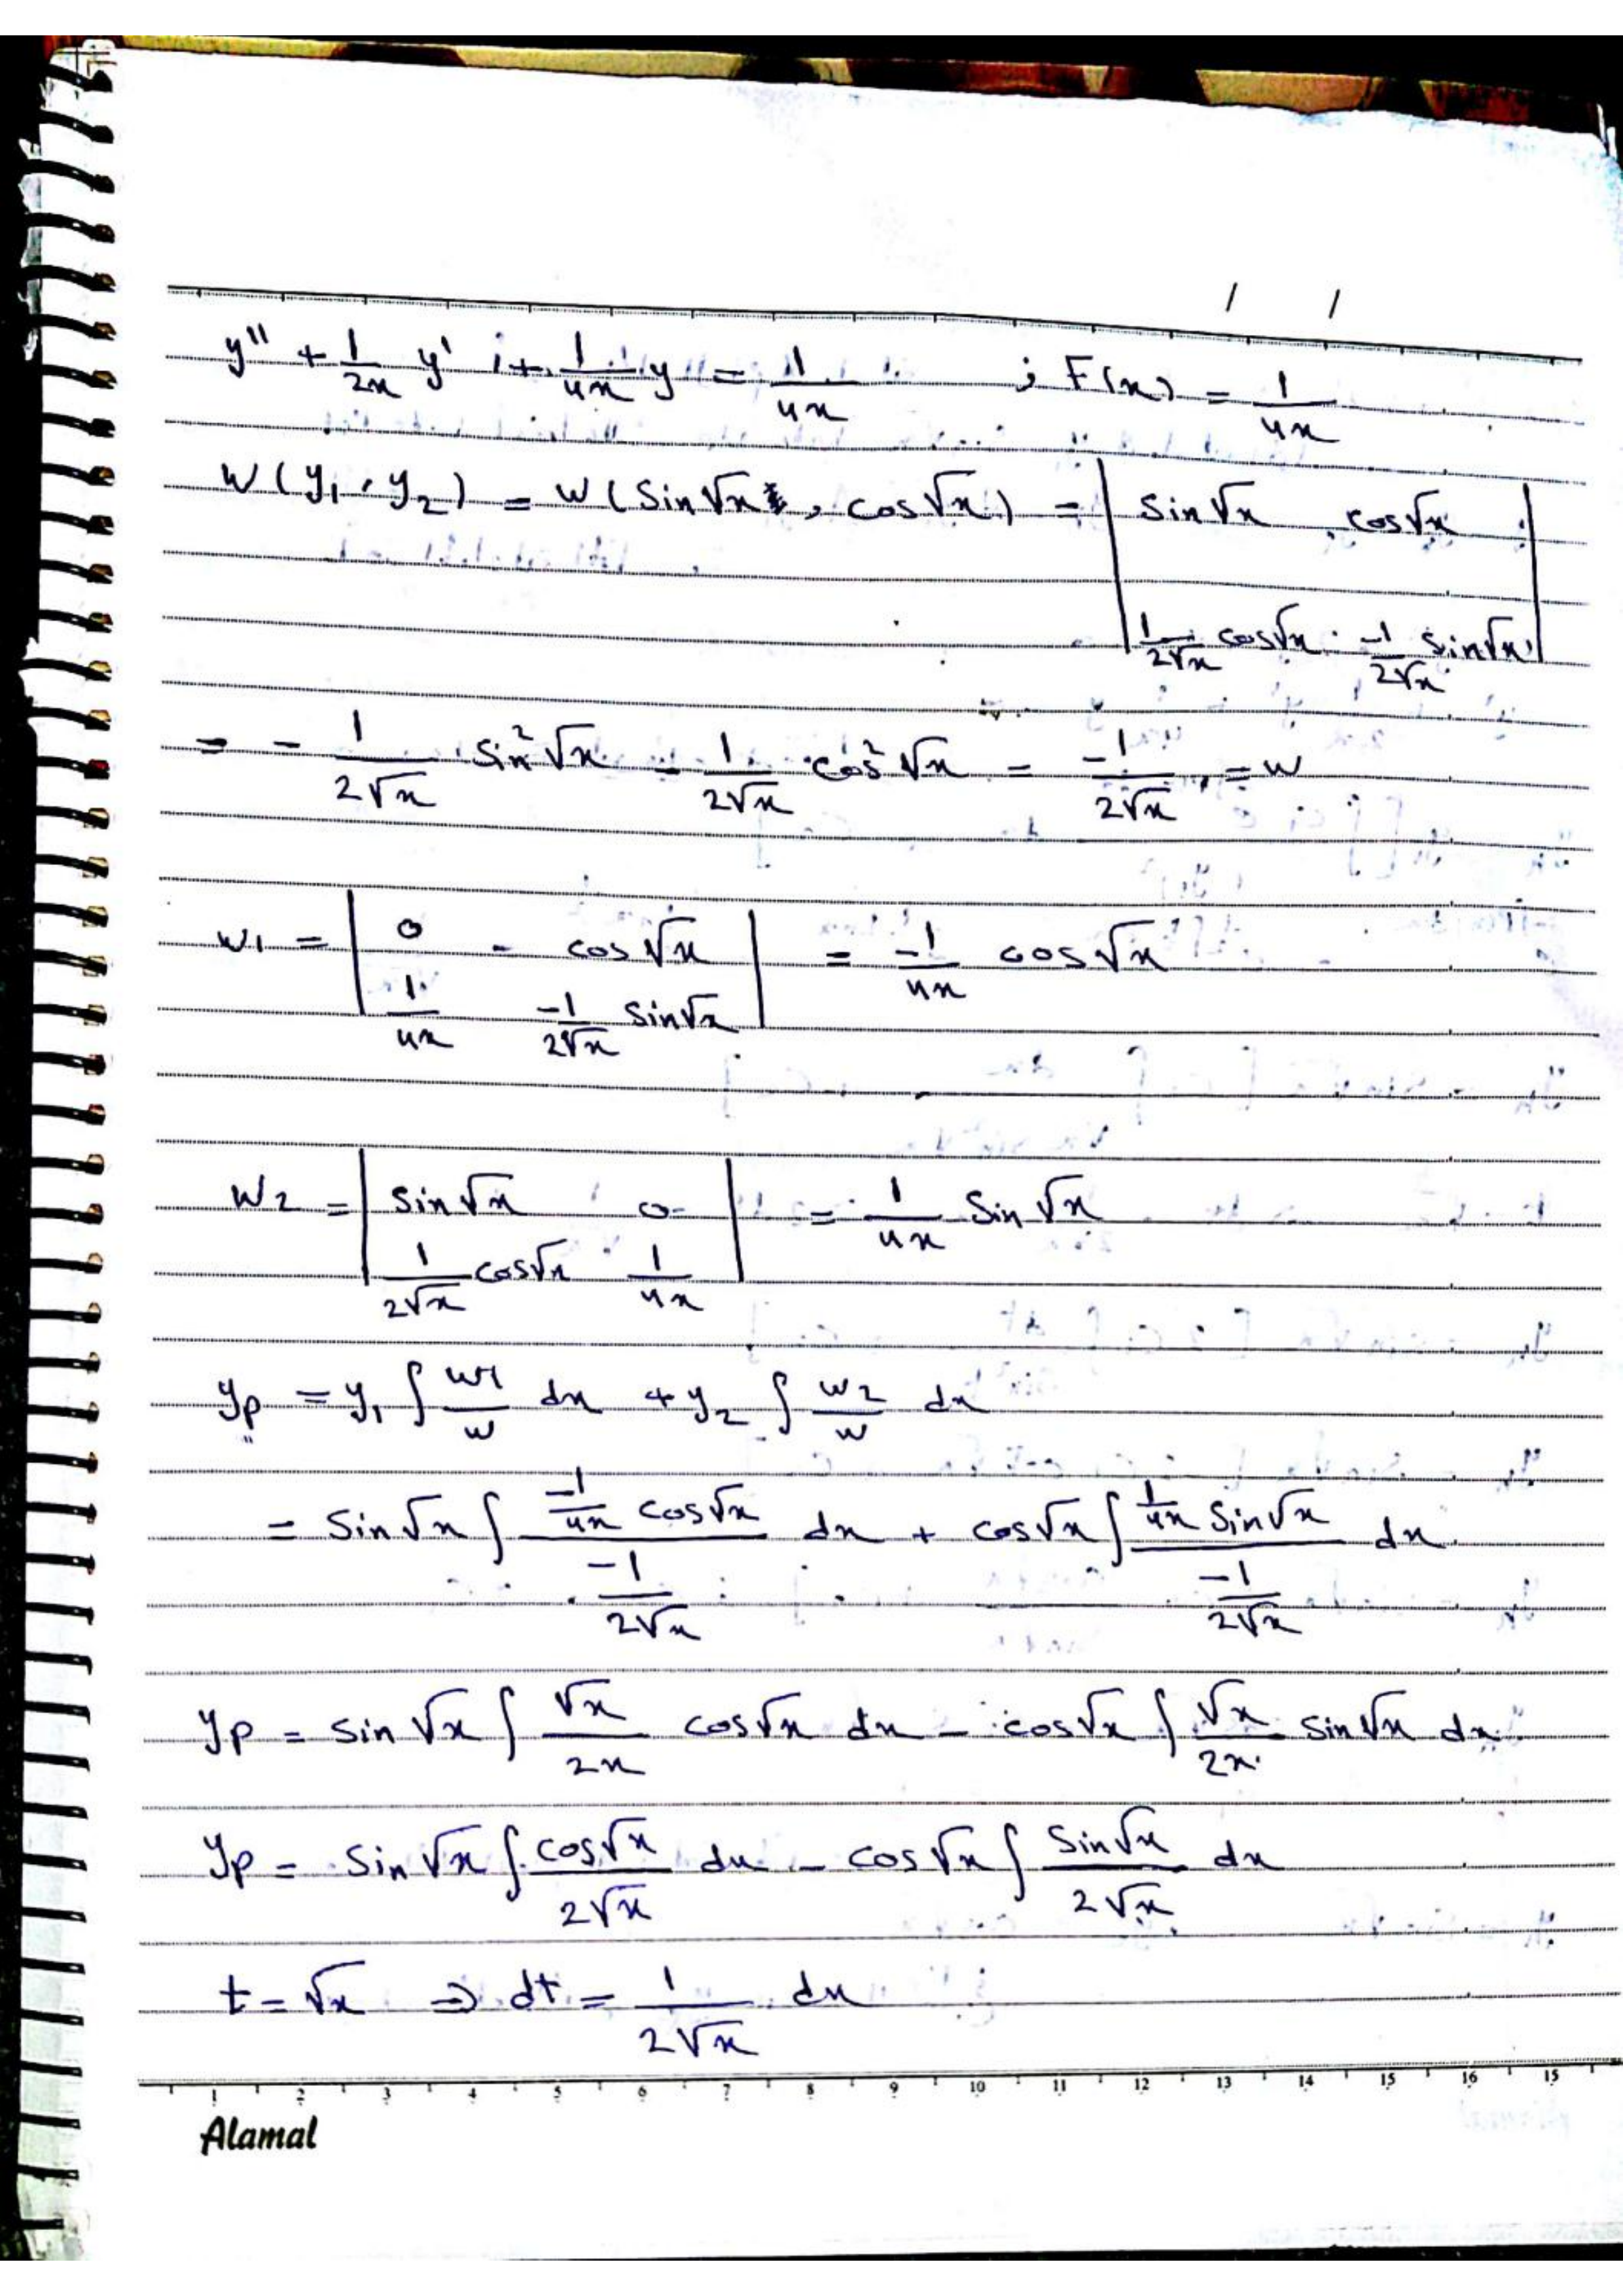 / /
y'' + 1/2x y' + 1/4x y = 1/4x ; F(x) = 1/4x
W(y₁, y₂) = W(sin√x, cos√x) = | sin√x cos√x |
| 1/2√x cos√x -1/2√x sin√x |
= - 1/2√x sin²√x - 1/2√x cos²√x = -1/2√x = W
W₁ = | 0 cos√x | = -1/4x cos√x
| 1/4x -1/2√x sin√x |
W₂ = | sin√x 0 | = 1/4x sin√x
| 1/2√x cos√x 1/4x |
yp = y₁ ∫ W1/W dx + y₂ ∫ W2/W dx
= sin√x ∫ (-1/4x cos√x)/(-1/2√x) dx + cos√x ∫ (1/4x sin√x)/(-1/2√x) dx
yp = sin√x ∫ √x/2x cos√x dx - cos√x ∫ √x/2x sin√x dx
yp = sin√x ∫ cos√x/2√x dx - cos√x ∫ sin√x/2√x dx
t = √x ⇒ dt = 1/2√x dx
1 2 3 4 5 6 7 8 9 10 11 12 13 14 15 16 15
Alamal